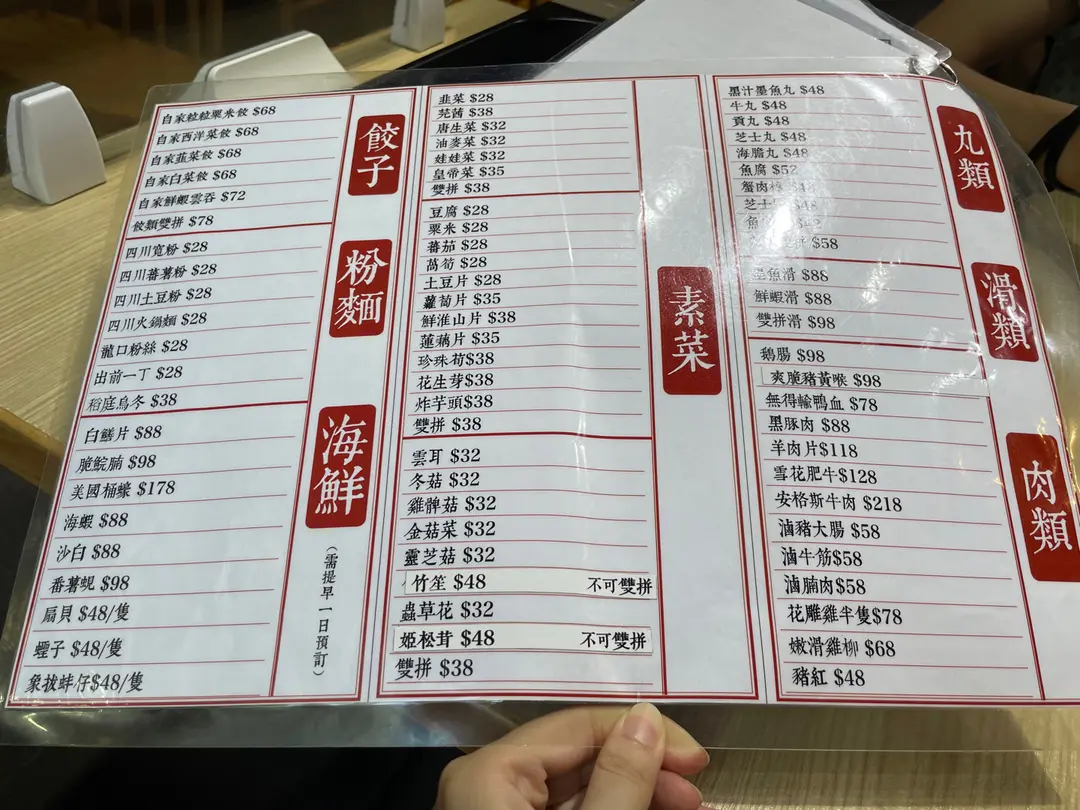 自家粒粒粟米餃 $68
自家西洋菜餃 $68
自家韮菜餃 $68
自家白菜餃 $68
自家鮮蝦雲吞 $72
餃類雙拼 $78
餃子
四川寬粉 $28
四川蕃薯粉 $28
四川土豆粉 $28
四川火鍋麵 $28
龍口粉絲 $28
出前一丁 $28
稻庭烏冬 $38
粉麵
白鱔片 $88
脆鯇腩 $98
美國桶蠔 $178
海蝦 $88
沙白 $88
番薯蜆 $98
扇貝 $48/隻
蟶子 $48/隻
象拔蚌仔$48/隻
海鮮
（需提早一日預訂）
韮菜 $28
芫茜 $38
唐生菜 $32
油麥菜 $32
娃娃菜 $32
皇帝菜 $35
雙拼 $38
豆腐 $28
粟米 $28
蕃茄 $28
萵筍 $28
土豆片 $28
蘿蔔片 $35
鮮淮山片 $38
蓮藕片 $35
珍珠荀$38
花生芽$38
炸芋頭$38
雙拼 $38
雲耳 $32
冬菇 $32
雞髀菇 $32
金菇菜 $32
靈芝菇 $32
竹笙 $48 不可雙拼
蟲草花 $32
姬松茸 $48 不可雙拼
雙拼 $38
素菜
墨汁墨魚丸 $48
牛丸 $48
貢丸 $48
芝士丸 $48
海膽丸 $48
魚腐 $52
蟹肉 $48
芝士 $48
魚
拼 $58
丸類
墨魚滑 $88
鮮蝦滑 $88
雙拼滑 $98
滑類
鵝腸 $98
爽脆豬黃喉 $98
無得輸鴨血 $78
黑豚肉 $88
羊肉片$118
雪花肥牛$128
安格斯牛肉 $218
滷豬大腸 $58
滷牛筋$58
滷腩肉$58
花雕雞半隻$78
嫩滑雞柳 $68
豬紅 $48
肉類